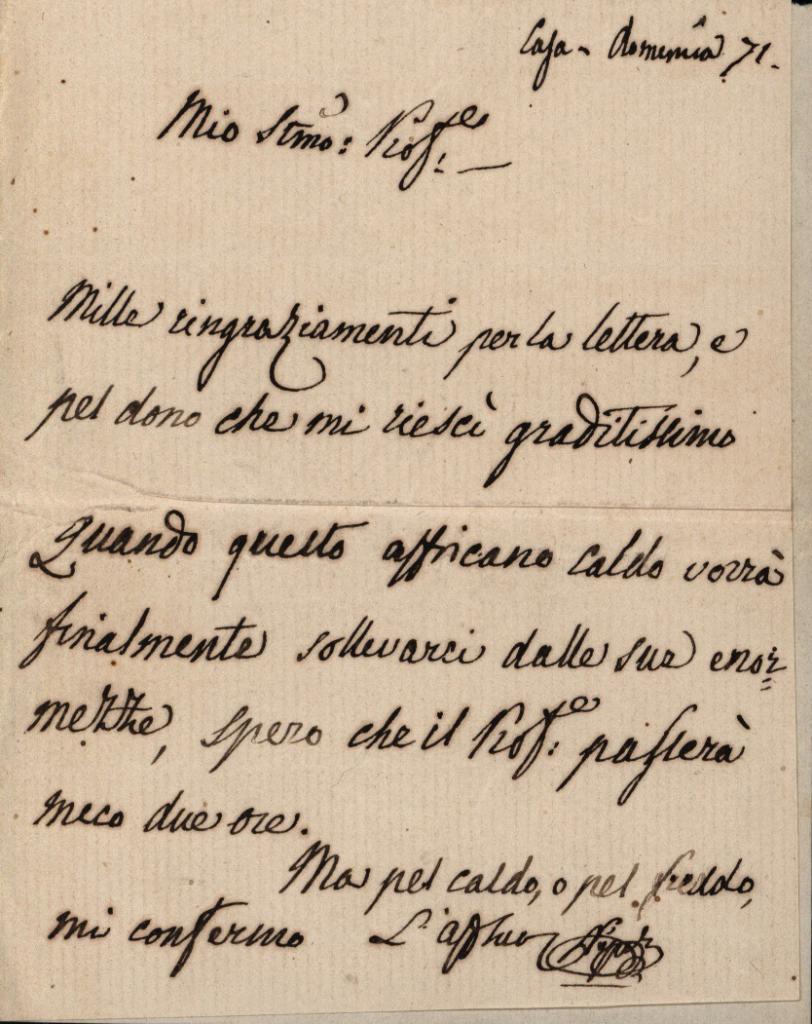 Casa - Domenica 71.
Mio Stmo: Prof:e —
Mille ringraziamenti per la lettera, e
pel dono che mi riescì graditissimo
Quando questo affricano caldo vorrà
finalmente sollevarci dalle sue enor=
mezze, spero che il Prof:e passerà
meco due ore.
Ma pel caldo, o pel freddo,
mi confermo L'affmo